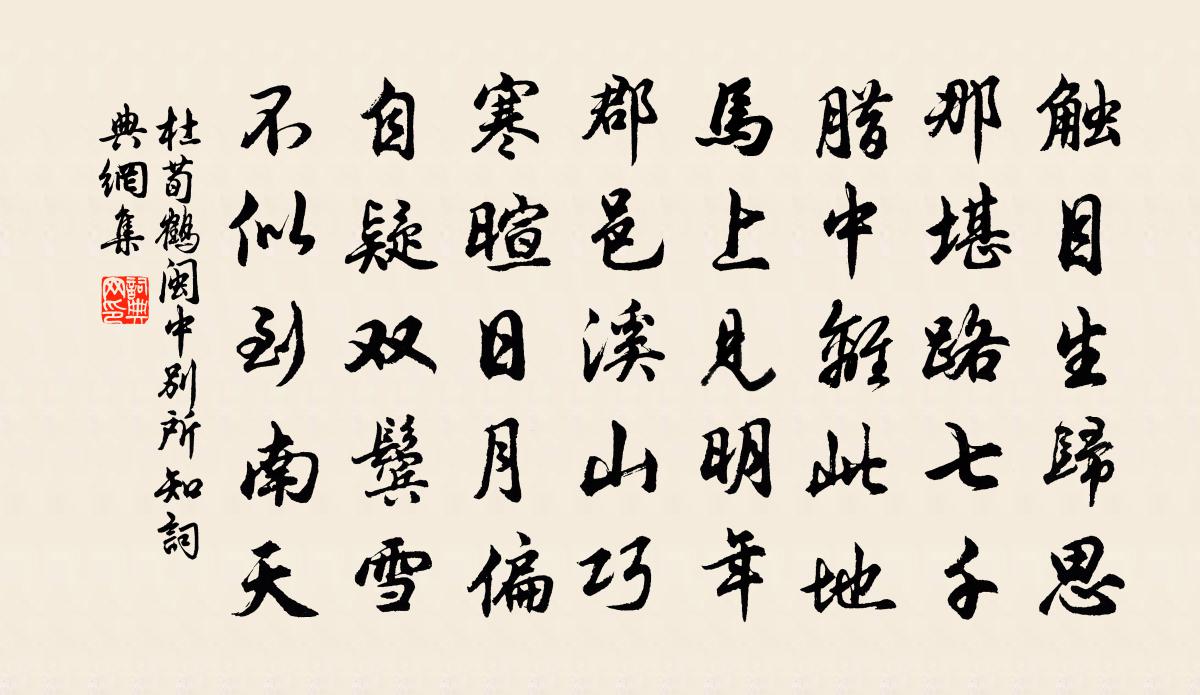 触目生歸思
那堪路七千
腊中離此地
馬上見明年
郡邑溪山巧
寒暄日月偏
自疑双鬓雪
不似到南天
杜荀鶴閩中别所知詞
典網集
詞典
网印